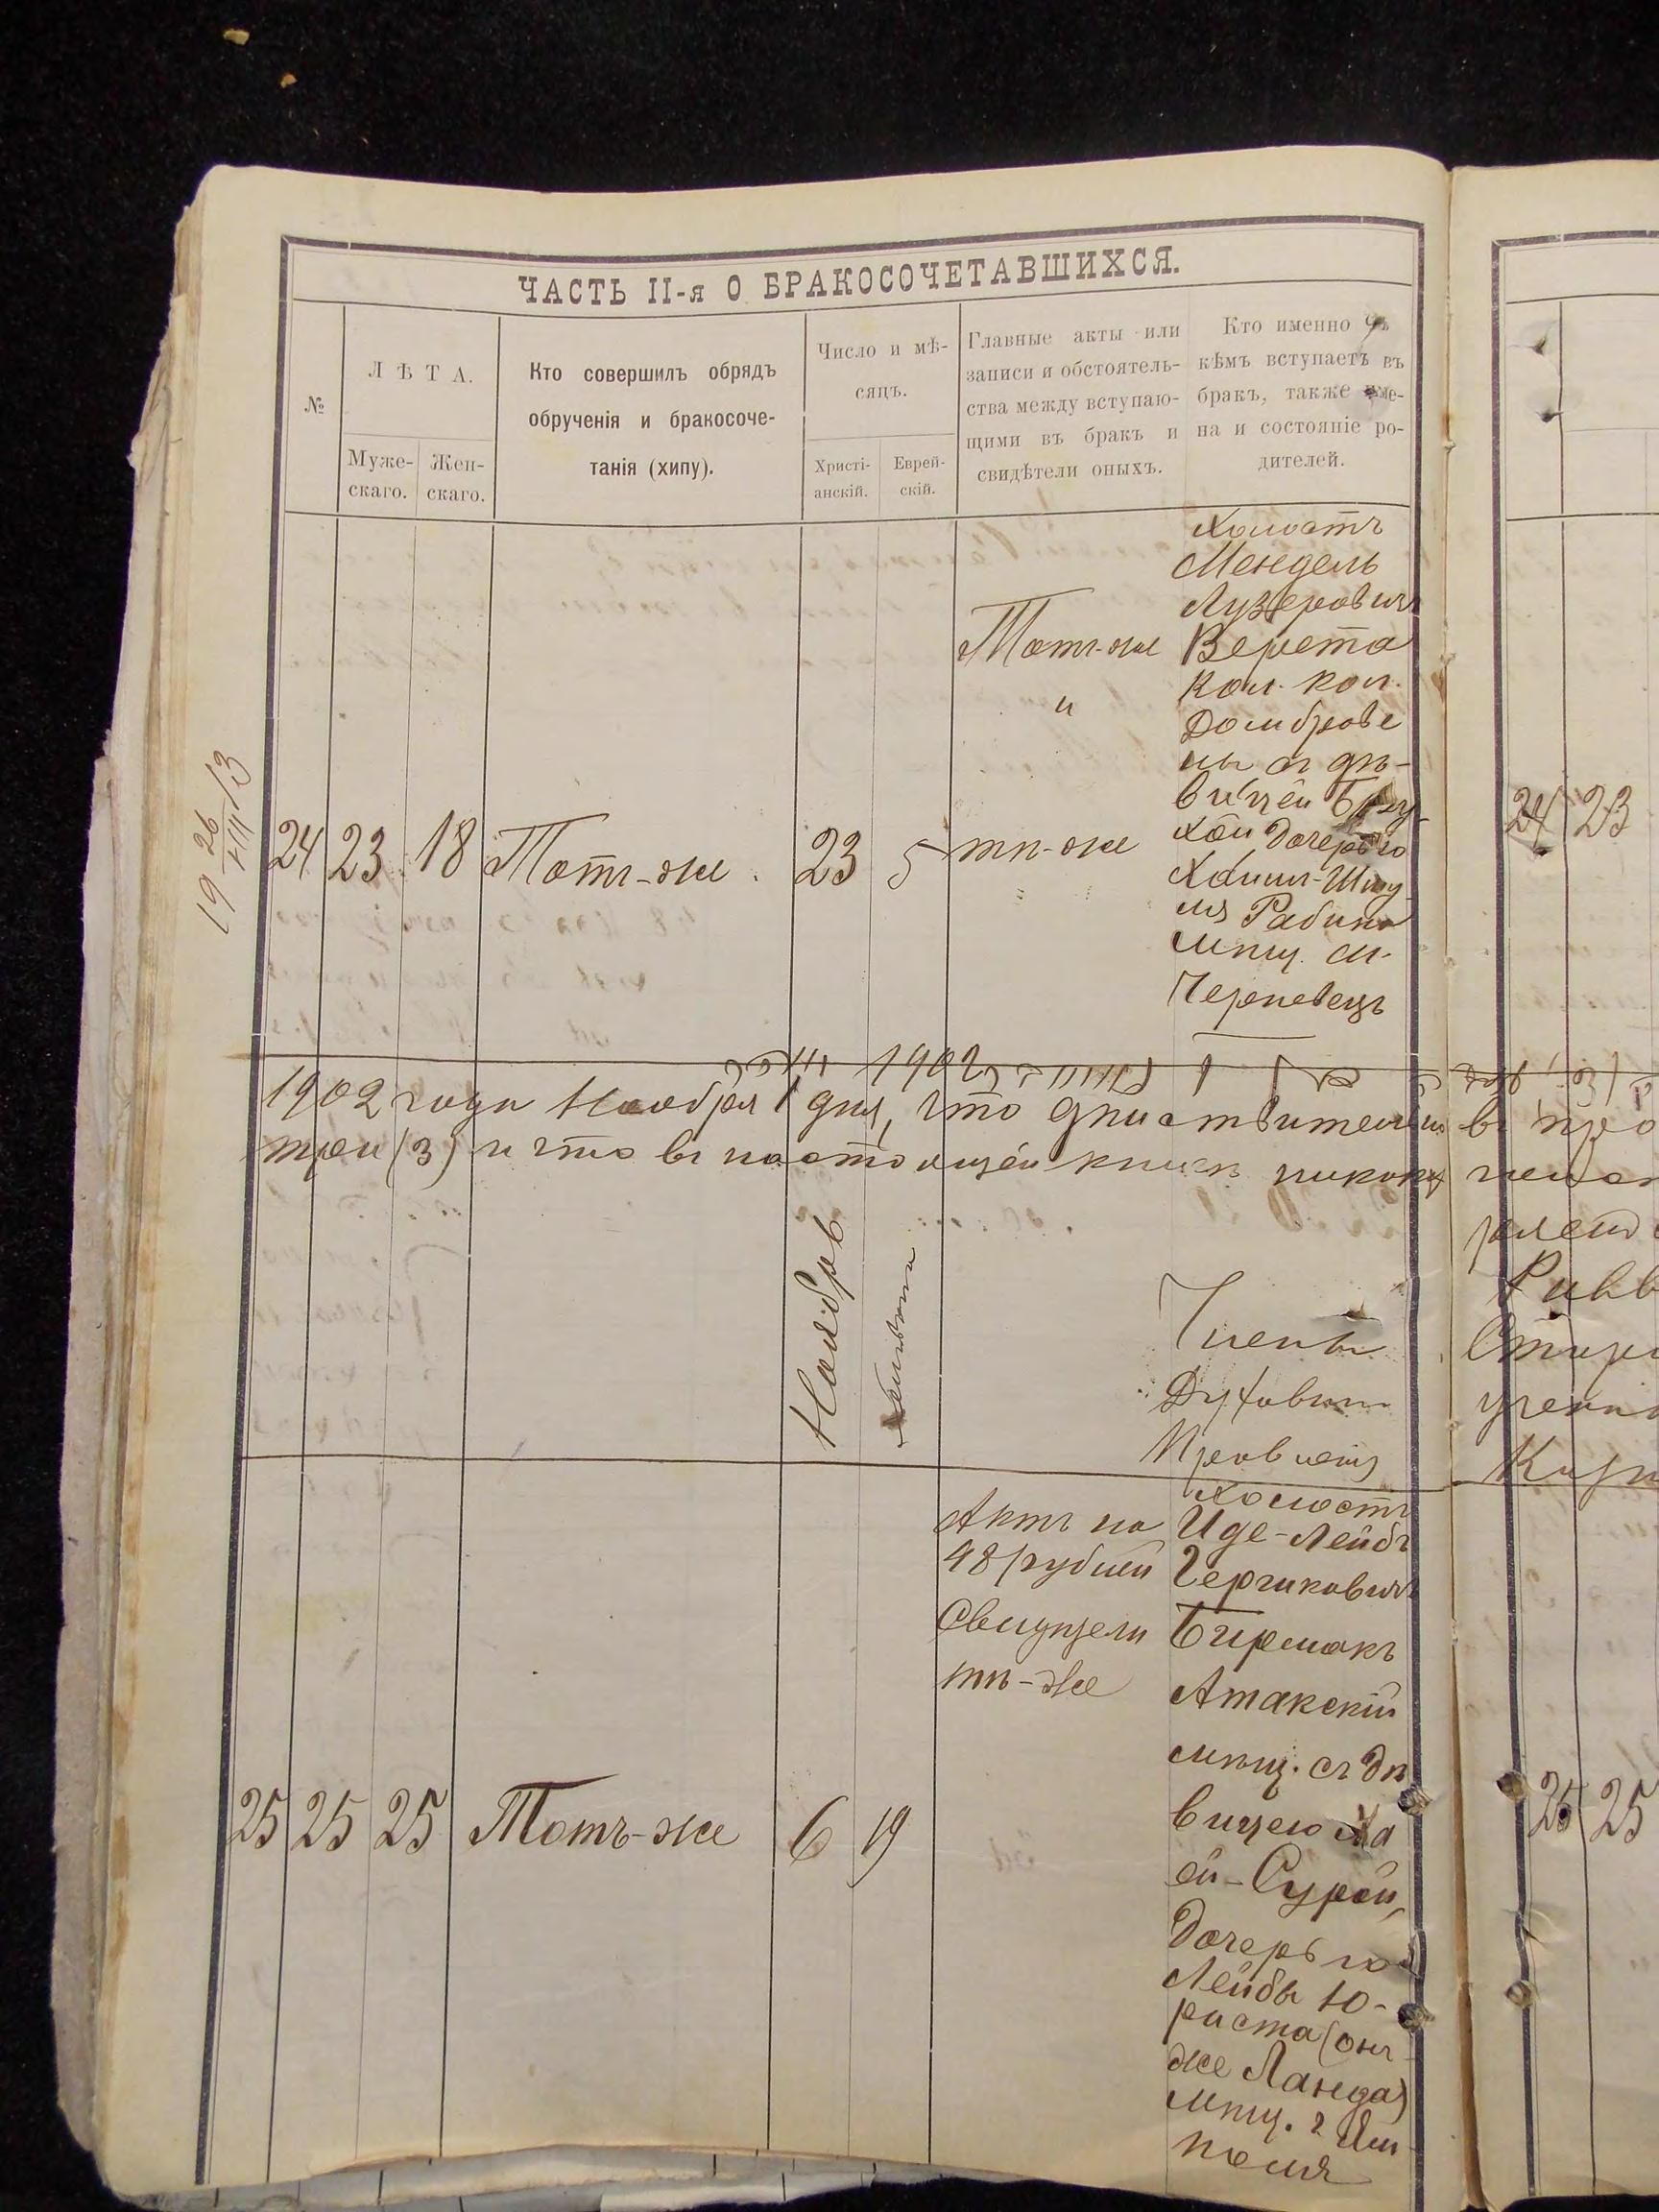 ЧАСТЬ II-я О БРАКОСОЧЕТАВШИХСЯ.
№
ЛѢТА.
Муже-
скаго.
Жен-
скаго.
Кто совершилъ обрядъ
обрученія и бракосоче-
танія (хипу).
Число и мѣ-
сяцъ.
Христі-
анскій.
Еврей-
скій.
Главные акты или
записи и обстоятель-
ства между вступаю-
щими въ бракъ и
свидѣтели оныхъ.
Кто именно съ
кѣмъ вступаетъ въ
бракъ, также име-
на и состояніе ро-
дителей.
19 26/VIII 13
24 23 18 Тотъ-же 23 5
Тотъ-же
и
тѣ-же
Холостъ
Мендель
Лузеровичъ
Верета
кол. кол.
Домброве
ны съ дѣ-
вицей
хой дочерью
Хаимъ-Шму
ля Рабина
мѣщ. м.
Черневецъ
1902 года Ноября 1 дня, что дѣйствительно въ
трои (3) и что въ настоящей книгѣ никакихъ
Ноябрь
Члены
Духовнаго
Правленія
25 25 25 Тотъ-же 6 19
Актъ на
48 рублей
Свидѣтели
тѣ-же
Холостъ
Иде-Лейбъ
Герчиковичъ
Бирмакъ
Атакскій
мѣщ. съ дѣ
вицею Ха
ей-Сурой,
дочерью
Лейбы Ю-
риста (онъ
же Ланда)
мѣщ. г. Ям
поля
24 23
25 25